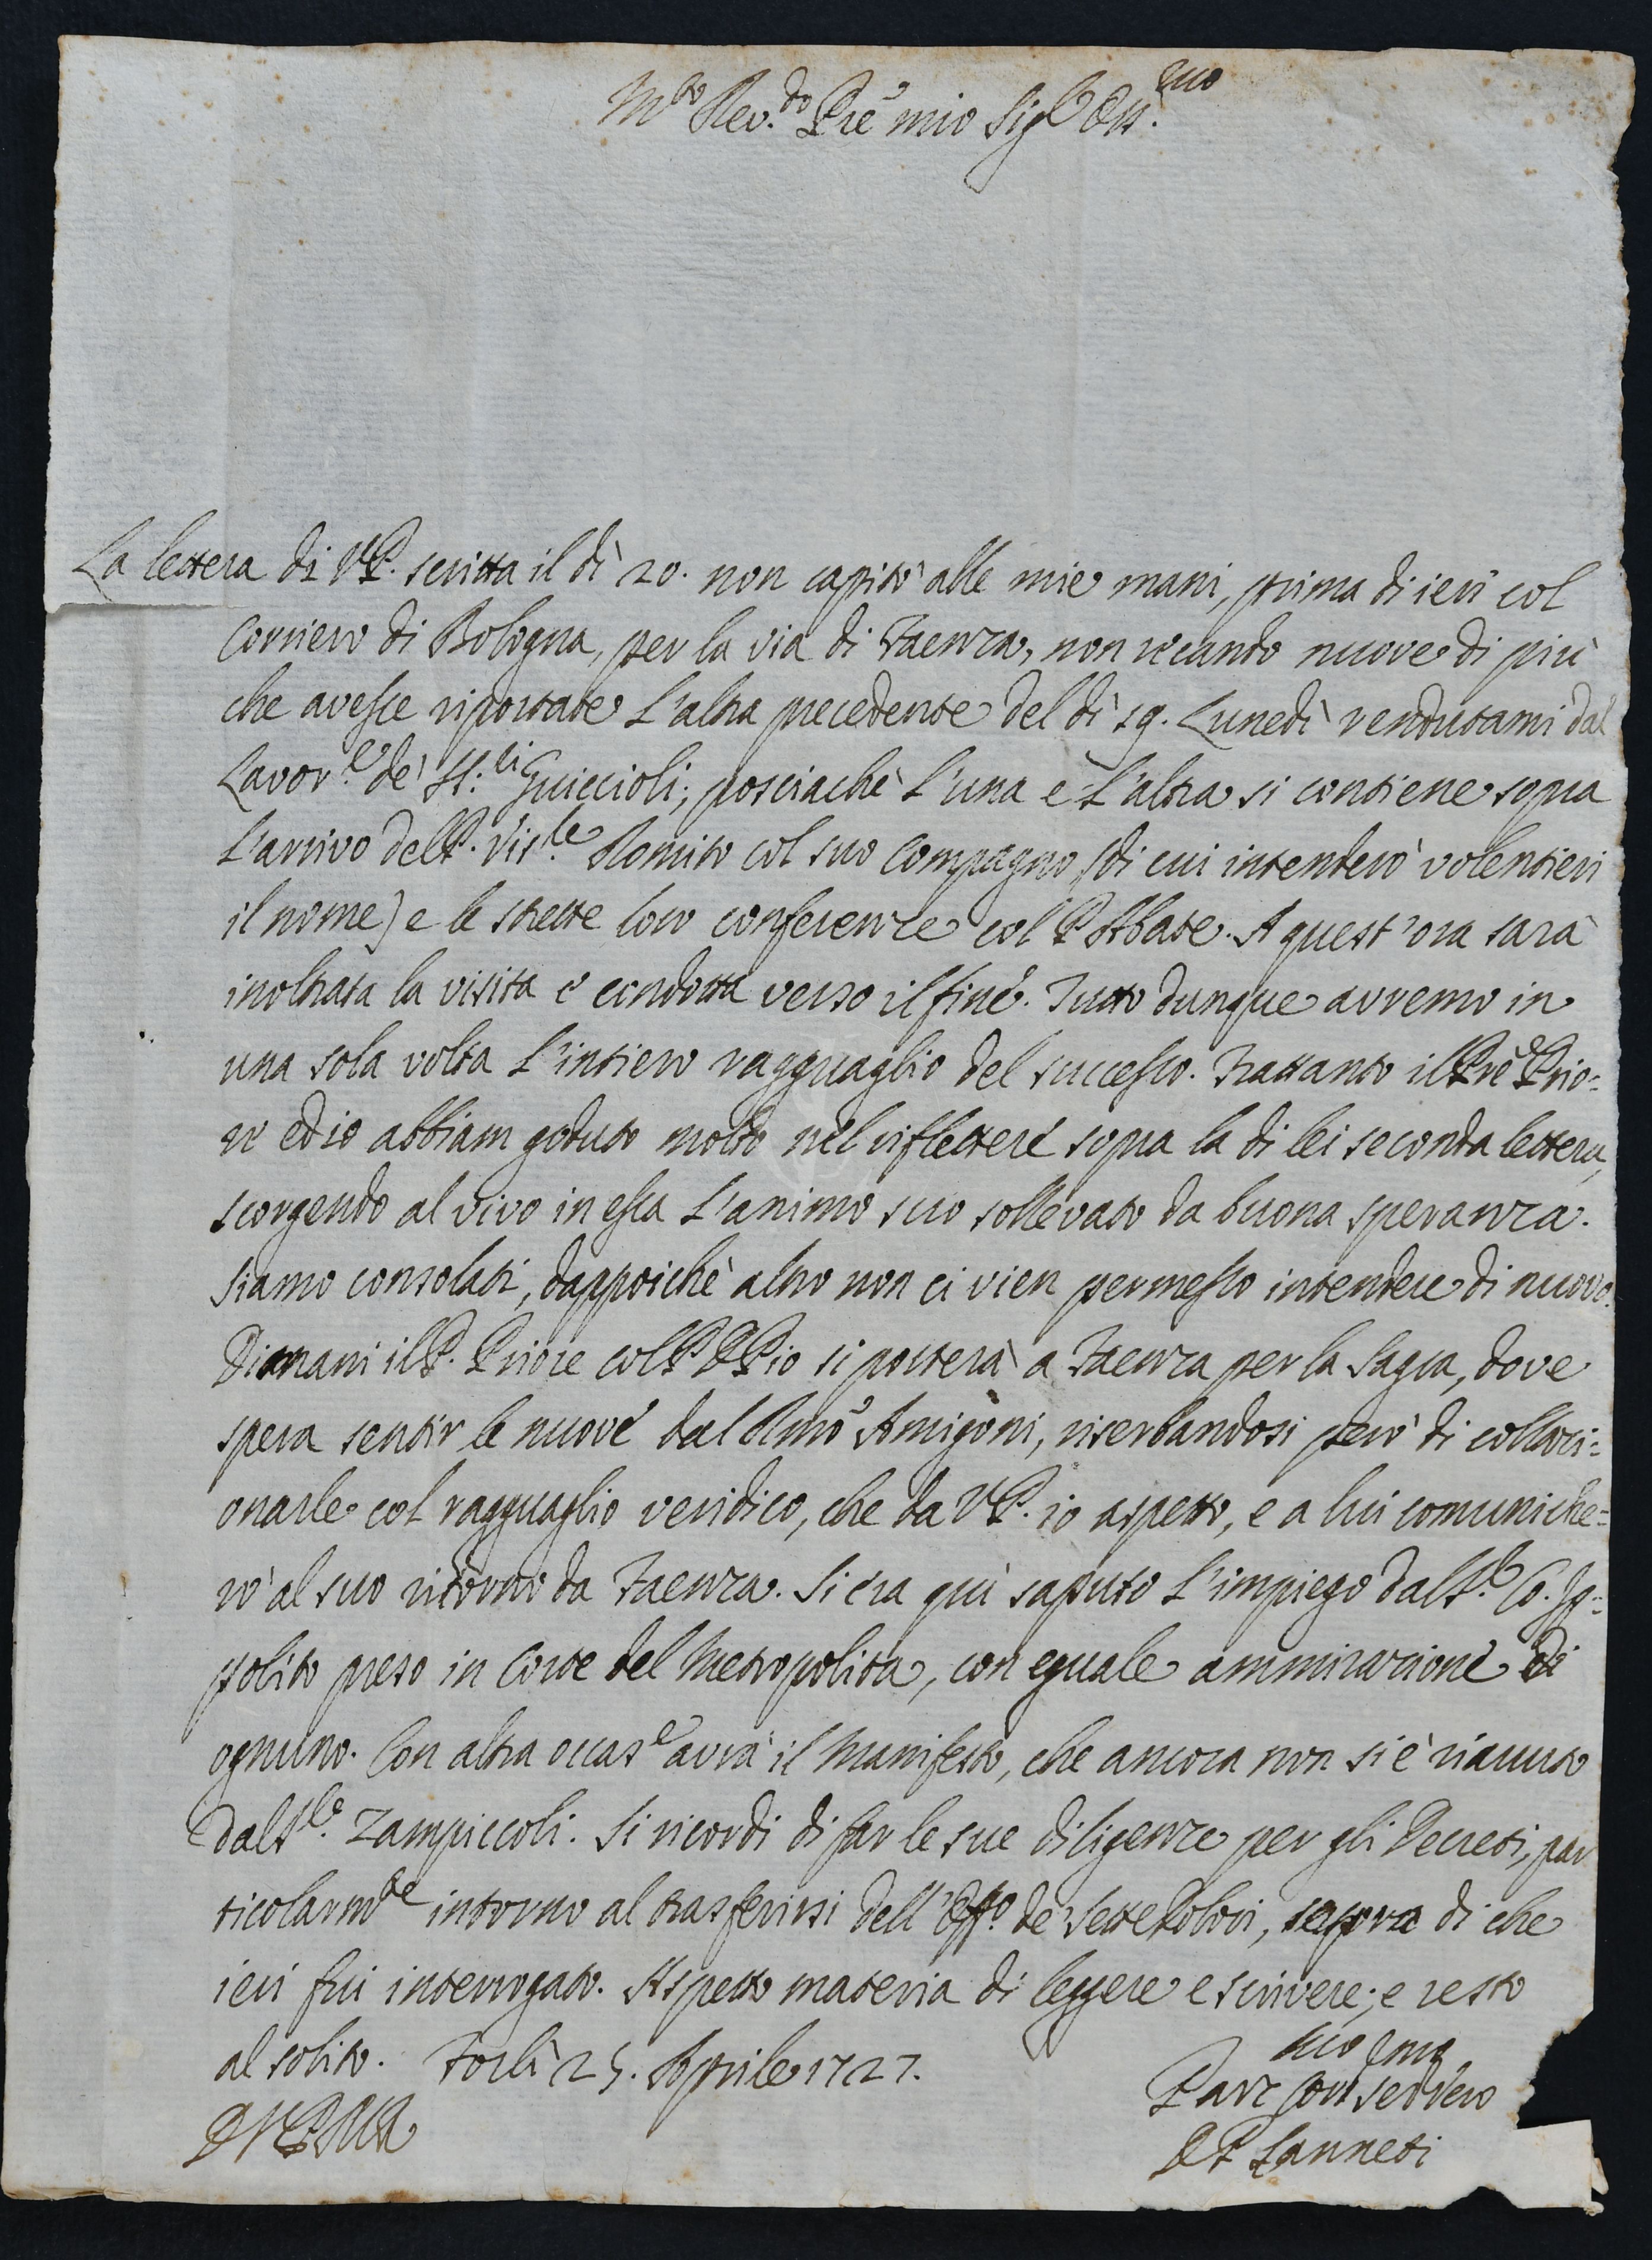 M.to Rev.do Prē mio Sig.r Oss.mo
La lettera di V.P. scritta il dì 20. non capitò alle mie mani, prima di ieri col
Corriero di Bologna, per la via di Faenza, non recando nuove di più
che avesse riportate l'altra precedente del dì 19. Lunedì rendutami dal
Lavor.e de' SS.ri Guiccioli; posciachè l'una e l'altra si contiene sopra
l'arrivo del P. Vis.re Romito col suo compagno (di cui intenderò volentieri
il nome) e le strette loro conferenze col P. Abate. A quest'ora sarà
inoltrata la visita e condotta verso il fine. Tutto dunque avremo in
una sola volta l'intiero ragguaglio del successo. Trattanto il Prē Prio=
re ed io abbiam goduto molto nel riflettere sopra la di lei seconda lettera,
scorgendo al vivo in essa l'animo suo sollevato da buona speranza.
Siamo consolati, dappoichè altro non ci vien permesso intendere di nuovo.
Dimani il P. Priore col P. D. Pio si porterà a Faenza per la Sagra, dove
spera sentir le nuove dal Rmō Amigoni, riserbandosi però di collazi=
onarle col ragguaglio veridico, che da V.P. io aspetto, e a lui comuniche=
rò al suo ritorno da Faenza. Si era quì saputo l'impiego dal S.r Co. Ip=
polito preso in Corte del Metropolita, con eguale ammirazione di
ognuno. Con altra occas.e avrà il Manifesto, che ancora non si è riavuto
dal S.r Zampiccoli. Si ricordi di far le sue diligenze per gli Decreti, par
ticolarm.te intorno al trasferirsi dell' Eff.o de' Settedolori, sopra di che
ieri fui interrogato. Aspetto materia di leggere e scrivere; e resto
al solito. Forlì 25. Aprile 1727.
D V P M R
Suo
Parz. con Servero
D P Canneti